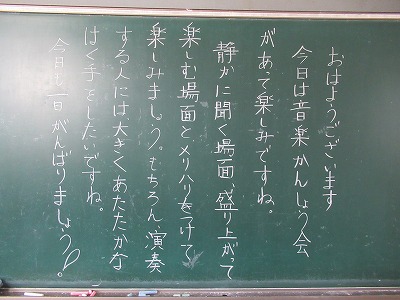 おはようございます
今日は音楽かんしょう会
があって楽しみですね。
静かに聞く場面、盛り上がって
楽しむ場面とメリハリをつけて
楽しみましょう。もちろん、演奏
する人には大きくあたたかな
はく手をしたいですね。
今日も一日がんばりましょう!